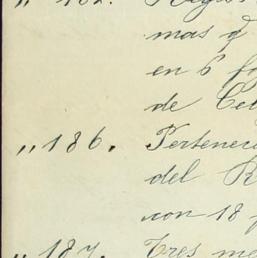 mas
en 6
de
„ 186. Pertenec
del R
con 18 f
„ 187. Tres me